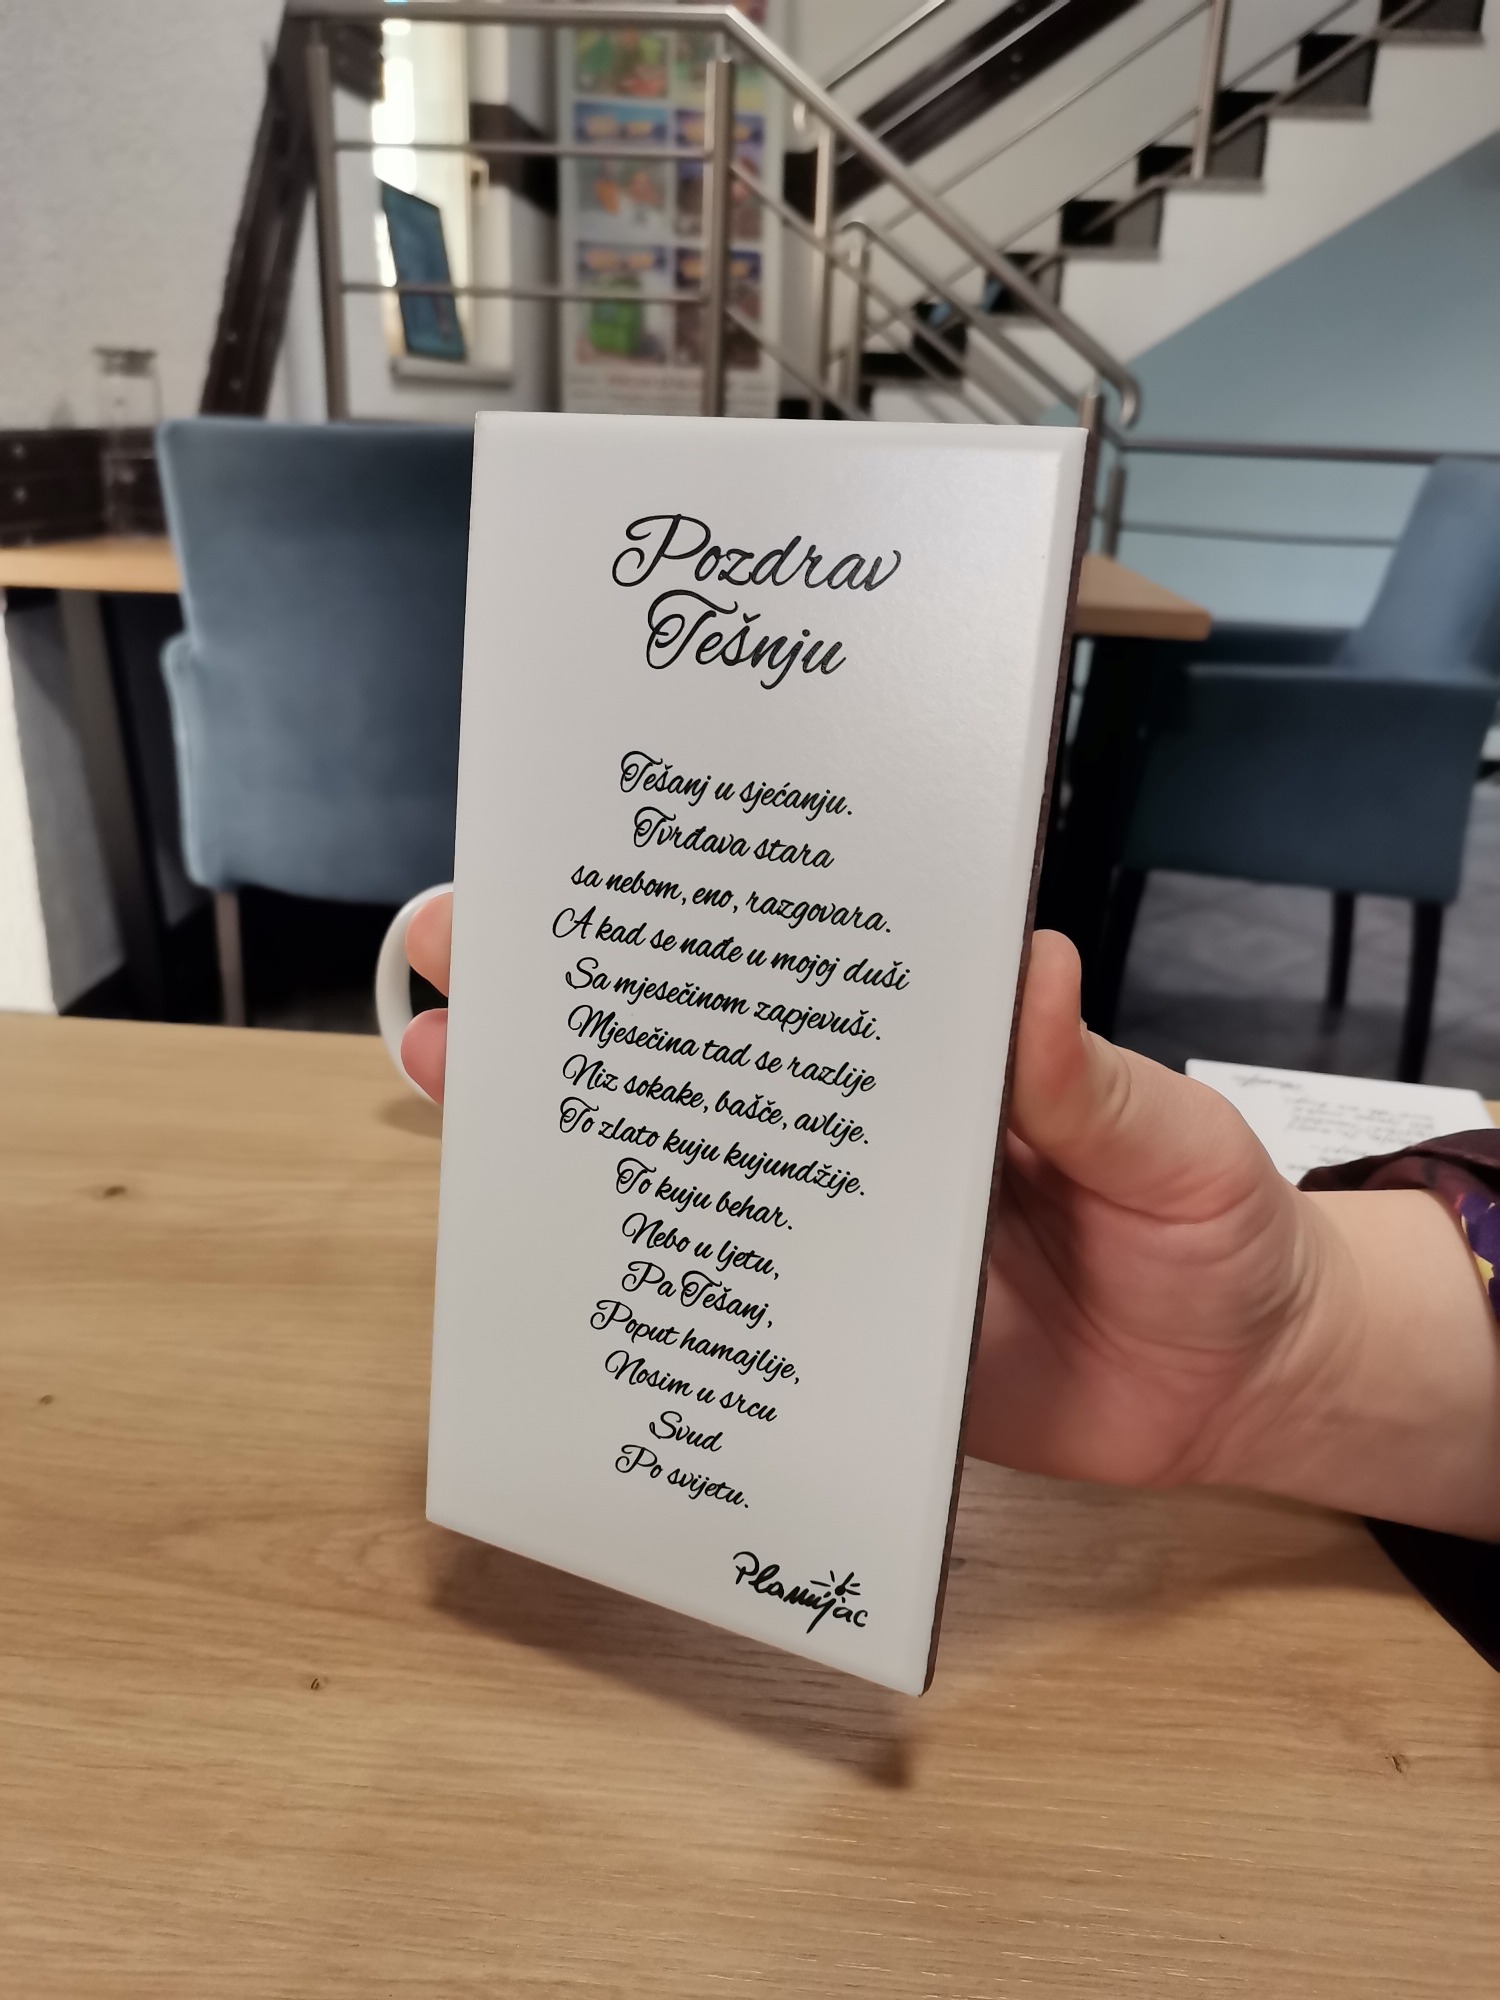 Pozdrav
Tešnju
Tešanj u sjećanju.
Tvrđava stara
sa nebom, eno, razgovara.
A kad se nađe u mojoj duši
Sa mjesečinom zapjevuši.
Mjesečina tad se razlije
Niz sokake, bašče, avlije.
To zlato kuju kujundžije.
To kuju behar.
Nebo u ljetu,
Pa Tešanj,
Poput hamajlije,
Nosim u srcu
Svud
Po svijetu.
Plamijac